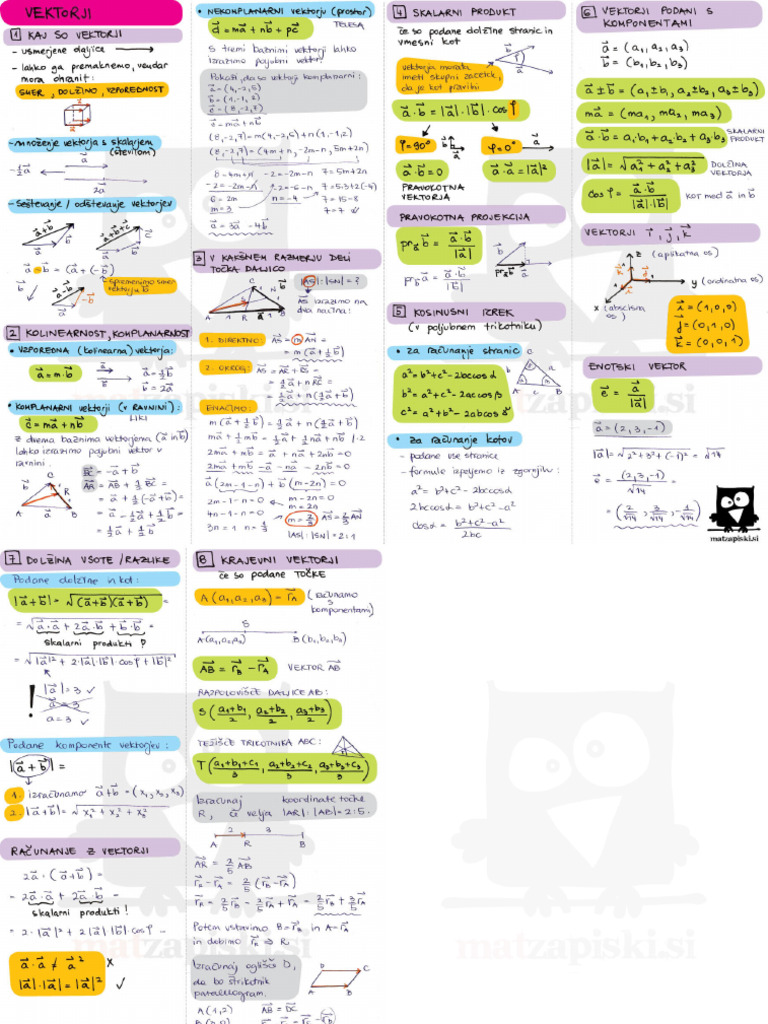 VEKTORJI
1 KAJ SO VEKTORJI
- usmerjene daljice
- lahko ga premaknemo, vendar
mora ohranit:
SMER, DOLŽINO, VZPOREDNOST
- množenje vektorja s skalarjem
(številom)
a
-½a
2a
- Seštevanje / odštevanje vektorjev
a+b
a
b
a+b+c
c
a - b = (a + (-b))
spremenimo smer
vektorju b
a-b
-b
2 KOLINEARNOST, KOMPLANARNOST
• VZPOREDNA (kolinearna) vektorja:
a = m·b
a = ½b
b = 2a
• KOMPLANARNI vektorji (v RAVNINI):
LIKI
c = ma + nb
z dvema bazinima vektorjema (a in b)
lahko izrazimo poljubni vektor v
ravnini.
BC = -a + b
AR = AB + ½BC =
= a + ½(-a+b) =
= a - ½a + ½b =
= ½a + ½b
• NEKOMPLANARNI vektorji (prostor)
TELESA
d = ma + nb + pc
S tremi bazinimi vektorji lahko
izrazimo poljubni vektor.
Pokaži, da so vektorji komplanarni:
a = (4,-2,5)
b = (1,-1,2)
c = (8,-2,7)
c = ma + nb
(8,-2,7) = m(4,-2,5) + n(1,-1,2)
(8,-2,7) = (4m+n, -2m-n, 5m+2n)
8-4m=n
-2=-2m-n
7=5m+2n
6=2m
m=3
n=-4
7=5·3+2(-4)
7=15-8
7=7 ✓
c = 3a - 4b
3 V KAKŠNEM RAZMERJU DELI
TOČKA DALJICO
|AS| : |SN| = ?
AS izrazimo na
dva načina:
1. DIREKTNO: AS = m AN =
= m(a + ½b)
2. OKROG: AS = AR + RS =
= ½a + nRC =
= ½a + n(½a + b)
ENAČIMO:
2m-1-n=0
m-2n=0
4n-1-n=0
m=2n
3n=1 n=⅓
m=⅔
AS = ⅔AN
|AS| : |SN| = 2:1
4 SKALARNI PRODUKT
če so podane dolžine stranic in
vmesni kot
vektorja morata
imeti skupni začetek,
da je kot pravilni
a·b = |a|·|b|·cos φ
φ=90°
φ=0°
a·b = 0
a·a = |a|²
PRAVOKOTNA
VEKTORJA
PRAVOKOTNA PROJEKCIJA
pr_a b = a·b / |a|
pr_b a = a·b / |b|
5 KOSINUSNI IZREK
(v poljubnem trikotniku)
• za računanje stranic
a² = b²+c²-2bc cos α
b² = a²+c²-2ac cos β
c² = a²+b²-2ab cos γ
• za računanje kotov
- podane vse stranice
- formule izpeljemo iz zgornjih:
a² = b²+c²-2bc cos α
2bc cos α = b²+c²-a²
cos α = b²+c²-a² / 2bc
6 VEKTORJI PODANI S
KOMPONENTAMI
a = (a₁, a₂, a₃)
b = (b₁, b₂, b₃)
a±b = (a₁±b₁, a₂±b₂, a₃±b₃)
ma = (ma₁, ma₂, ma₃)
a·b = a₁·b₁ + a₂·b₂ + a₃·b₃ SKALARNI
PRODUKT
|a| = √a₁²+a₂²+a₃² DOLŽINA
VEKTORJA
cos φ = a·b / |a|·|b| kot med a in b
VEKTORJI i, j, k
z (aplikatna os)
y (ordinatna os)
x (abscisna
os)
i = (1,0,0)
j = (0,1,0)
k = (0,0,1)
ENOTSKI VEKTOR
e = a / |a|
a = (2,3,-1)
|a| = √2²+3²+(-1)² = √14
e = (2,3,-1) / √14 =
= (2/√14, 3/√14, -1/√14)
matzapiski.si
7 DOLŽINA VSOTE / RAZLIKE
Podane dolžine in kot:
|a+b| = √(a+b)(a+b) =
= √a·a + 2a·b + b·b =
skalarni produkti?
= √|a|² + 2·|a|·|b|·cos φ + |b|²
! |a| = 3 ✓
a = 3
a = 3 ✓
Podane komponente vektorjev:
|a+b| =
1. izračunamo a+b = (x₁, x₂, x₃)
2. |a+b| = √x₁² + x₂² + x₃²
RAČUNANJE Z VEKTORJI
2a·(a+b) =
= 2a·a + 2a·b =
skalarni produkti!
= 2·|a|² + 2|a|·|b|·cos φ
a·a ≠ a² x
|a|·|a| = |a|² ✓
8 KRAJEVNI VEKTORJI
če so podane TOČKE
A(a₁, a₂, a₃) = r_A (računamo
s
komponentami)
S
A(a₁,a₂,a₃) B(b₁,b₂,b₃)
AB = r_B - r_A VEKTOR AB
RAZPOLOVIŠČE DALJICE AB:
S(a₁+b₁/2, a₂+b₂/2, a₃+b₃/2)
TEŽIŠČE TRIKOTNIKA ABC:
T(a₁+b₁+c₁/3, a₂+b₂+c₂/3, a₃+b₃+c₃/3)
Izračunaj koordinate točke
R, če velja |AR| : |AB| = 2:5.
2 3
A R B
AR = ⅖AB
r_R - r_A = ⅖(r_B - r_A)
r_R = ⅖r_B - ⅖r_A + r_A = ⅖r_B + ⅗r_A
Potem vstavimo B=r_B in A=r_A
in dobimo r_R ⇒ R
Izračunaj oglišče D,
da bo štirikotnik
paralelogram.
A(1,2)
AB = DC